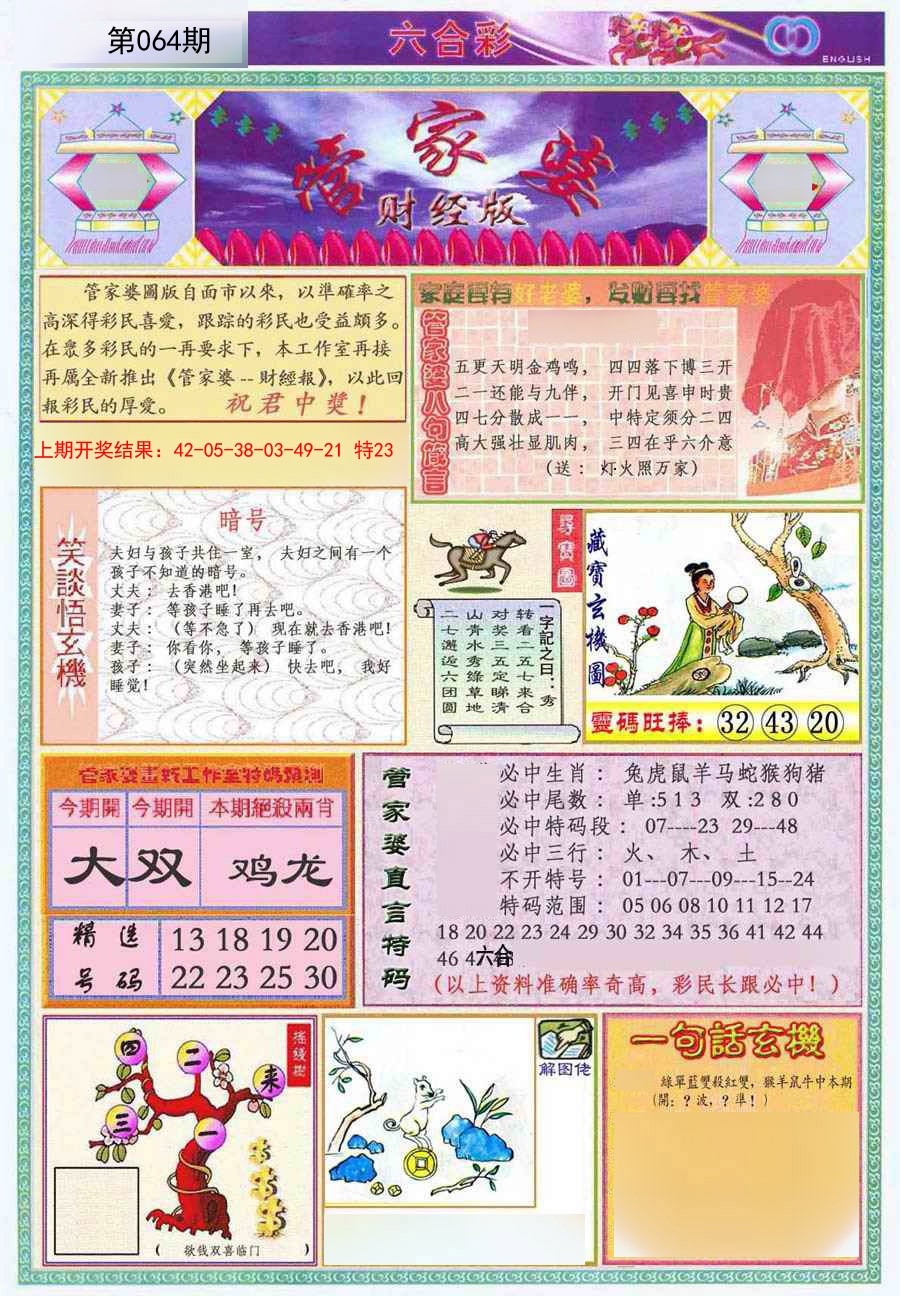 第064期
六合彩
ENGLISH
管家婆
财经版
管家婆圖版自面市以來，以準確率之
高深得彩民喜愛，跟踪的彩民也受益頗多。
在眾多彩民的一再要求下，本工作室再接
再厲全新推出《管家婆--財經報》，以此回
報彩民的厚愛。 祝君中獎！
上期开奖结果：42-05-38-03-49-21 特23
好老婆，
管家婆
管家婆八句箴言
五更天明金鸡鸣， 四四落下博三开
二一还能与九伴， 开门见喜申时贵
四七分散成一一， 中特定须分二四
高大强壮显肌肉， 三四在乎六介意
（送：灯火照万家）
笑談悟玄機
暗号
夫妇与孩子共住一室， 夫妇之间有一个
孩子不知道的暗号。
丈夫：去香港吧！
妻子：等孩子睡了再去吧。
丈夫：（等不急了） 现在就去香港吧！
妻子：你看你， 等孩子睡了。
孩子：（突然坐起来） 快去吧， 我好
睡觉！
一字記之曰：秀
转看二五七来合
对奖三五定睇清
山青水秀綠草地
二七邂逅六团圆
尋寶圖
藏寶玄機圖
靈碼旺捧：32 43 20
今期開 今期開 本期絕殺兩肖
大 双 鸡龙
精选号码
13 18 19 20
22 23 25 30
管家婆直言特码
必中生肖：兔虎鼠羊马蛇猴狗猪
必中尾数：单:513 双:280
必中特码段：07----23 29---48
必中三行：火、木、土
不开特号：01---07---09---15--24
特码范围：05 06 08 10 11 12 17
18 20 22 23 24 29 30 32 34 35 36 41 42 44
46
（以上资料准确率奇高，彩民长跟必中！）
搖錢樹
四 二 来
三 一
（ 欲钱双喜临门 ）
解图佬
一句話玄機
綠單藍雙殺紅雙，猴羊鼠牛中本期
（開：？波，？準！）